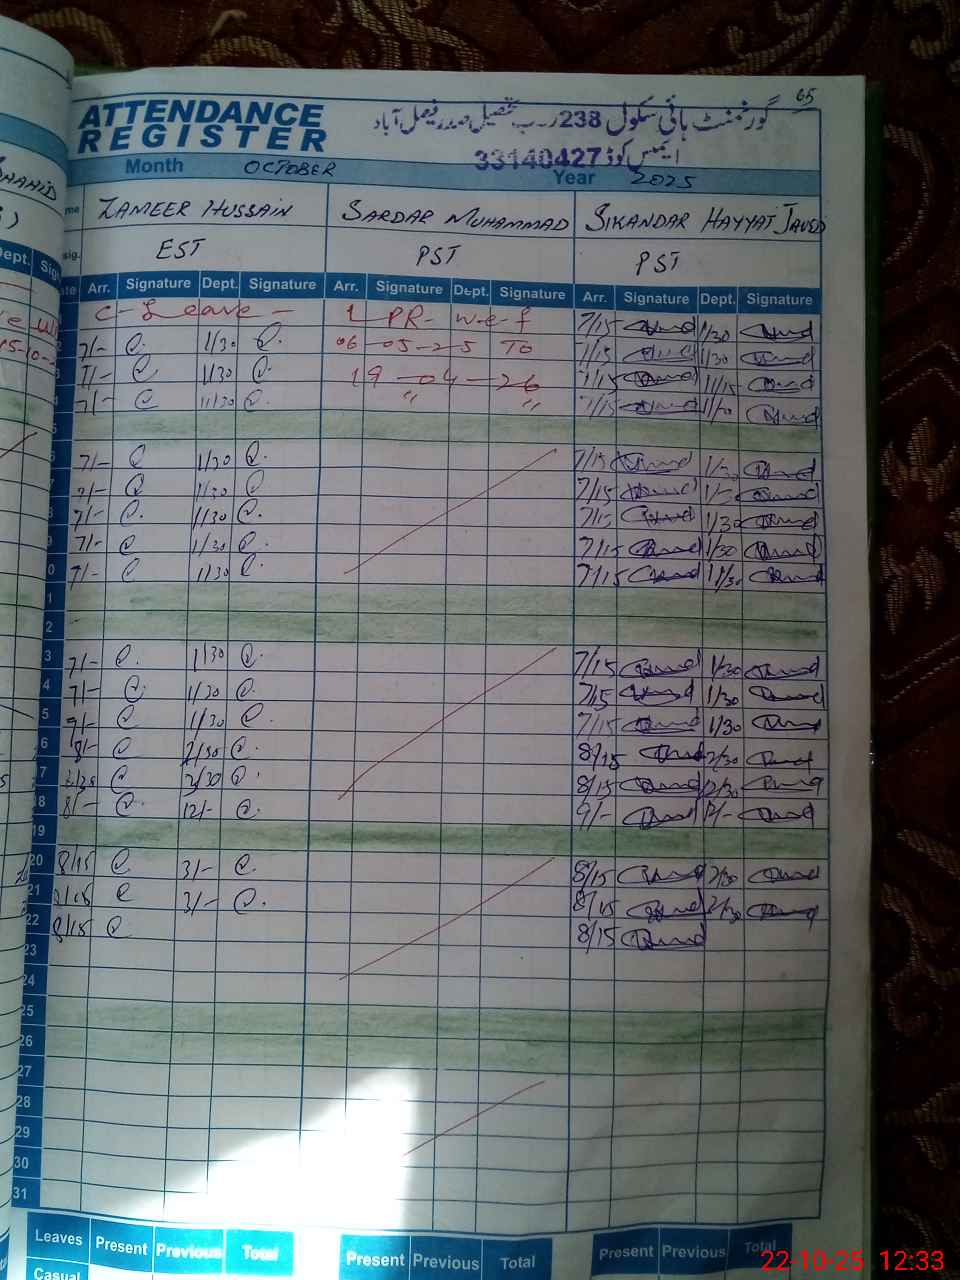 65
ATTENDANCE
REGISTER
گورنمنٹ ہائی سکول 238 ر۔ب تحصیل صدر فیصل آباد
ایمیس کوڈ 33140427
Month OCTOBER Year 2025
ZAMEER HUSSAIN SARDAR MUHAMMAD SIKANDAR HAYYAT JAVED
EST PST PST
Dept. Arr. Signature Dept. Signature Arr. Signature Dept. Signature Arr. Signature Dept. Signature
C- Leave - 1 PR- w.e.f 7/15 1/30
7/- 1/30 06-05-25 To 7/15 1/30
7/- 1/30 19-04-26 7/15 11/15
7/- 11/30 " " 7/15
7/- 1/30 7/15 1/30
7/- 1/30 7/15
7/- 1/30 7/15 1/30
7/- 1/30 7/15 1/30
7/- 1/30 7/15 11/30
1
2
3 7/- 1/30 7/15 1/30
4 7/- 1/30 7/15 1/30
5 1/30 7/15 1/30
6 8/- 2/30 8/15 2/30
7 2/30 8/15 2/30
18 8/- 12/- 9/- 12/-
19
20 8/15 3/- 8/15 2/30
21 3/- 8/15 2/30
22 8/15 8/15
23
24
25
26
27
28
29
30
31
Leaves Present Previous Total Present Previous Total Present Previous Total
Casual
22-10-25 12:33